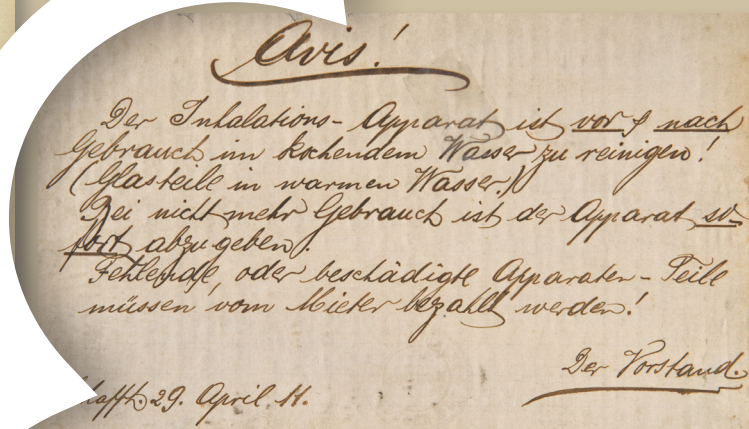 Avis!
Der Inhalations-Apparat ist vor & nach
Gebrauch im kochendem Wasser zu reinigen!
(Glasteile in warmen Wasser.)
Bei nicht mehr Gebrauch ist der Apparat so-
fort abzugeben.
Fehlende, oder beschädigte Apparaten-Teile
müssen vom Mieter bezahlt werden!
Der Vorstand.
29. April 11.